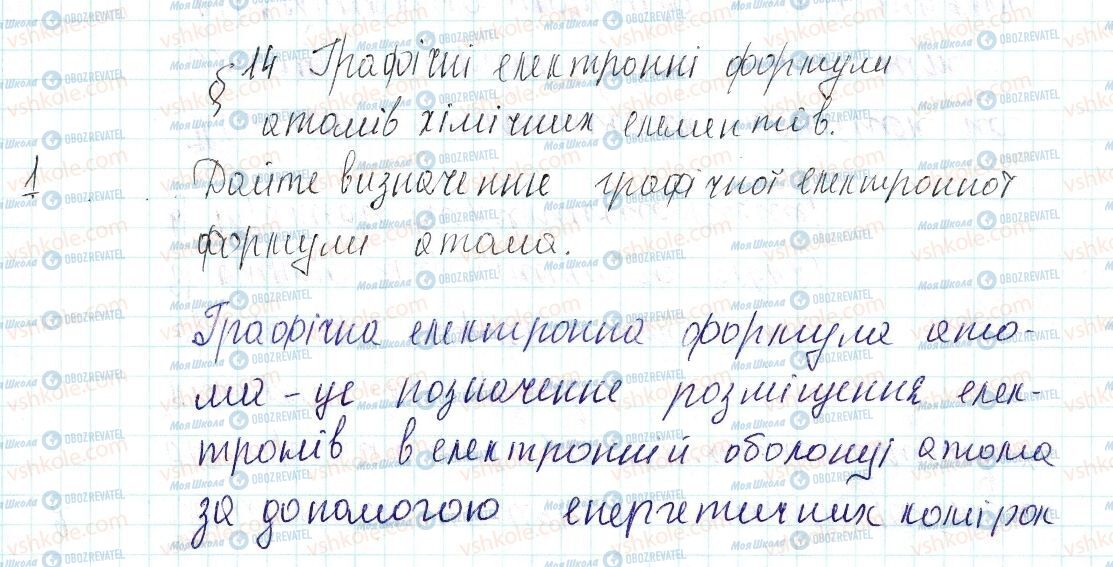 § 14 Графічні електронні формули
атомів хімічних елементів.
1 Дайте визначення графічної електронної
формули атома.
Графічна електронна формула ато-
ма - це позначення розміщення елек-
тронів в електронній оболонці атома
за допомогою енергетичних комірок